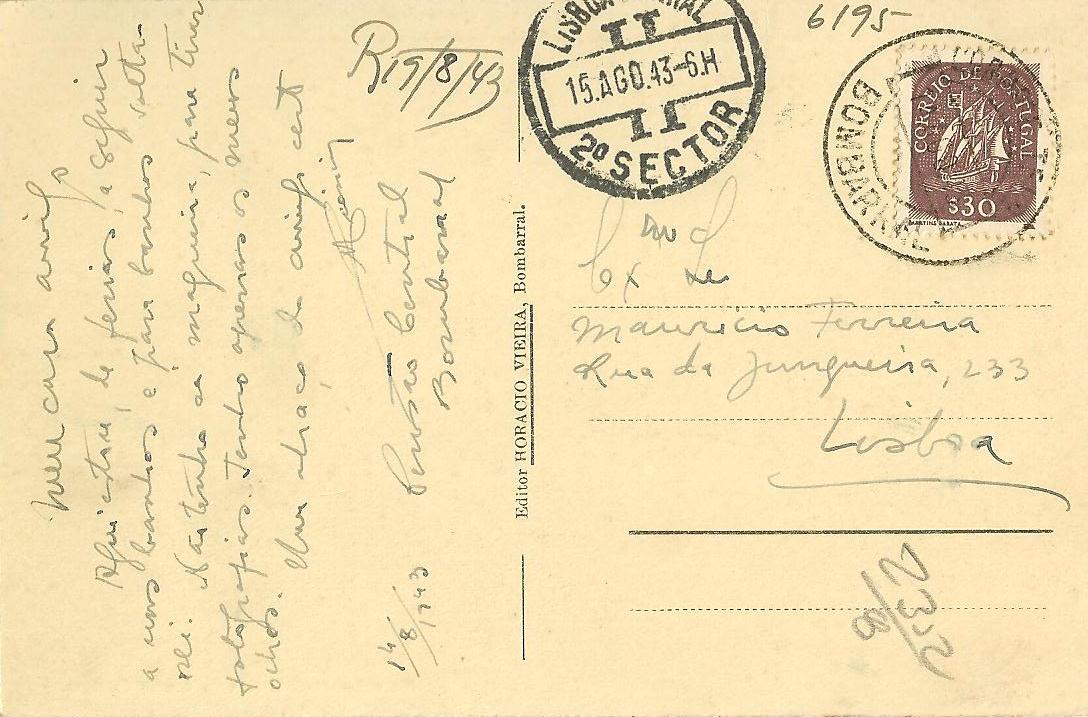 Meu caro amigo
Aqui estou, de ferias, a seguir
a uns banhos e para banhos volta-
rei. Não tenho a maquina, para tirar
fotografias. Tenho apenas os meus
olhos.
Um abraço do amigo cert
14/8/1943
Pensão Central
Bombarral
R 19/8/43
Editor HORACIO VIEIRA, Bombarral.
LISBOA CENTRAL
II
15.AGO.43-6.H
II
2º SECTOR
6195
CORREIO DE PORTUGAL
$30
MARTINS BARATA
BOMBARRAL
Ex mo Sr
Mauricio Ferreira
Rua da Junqueira, 233
Lisboa